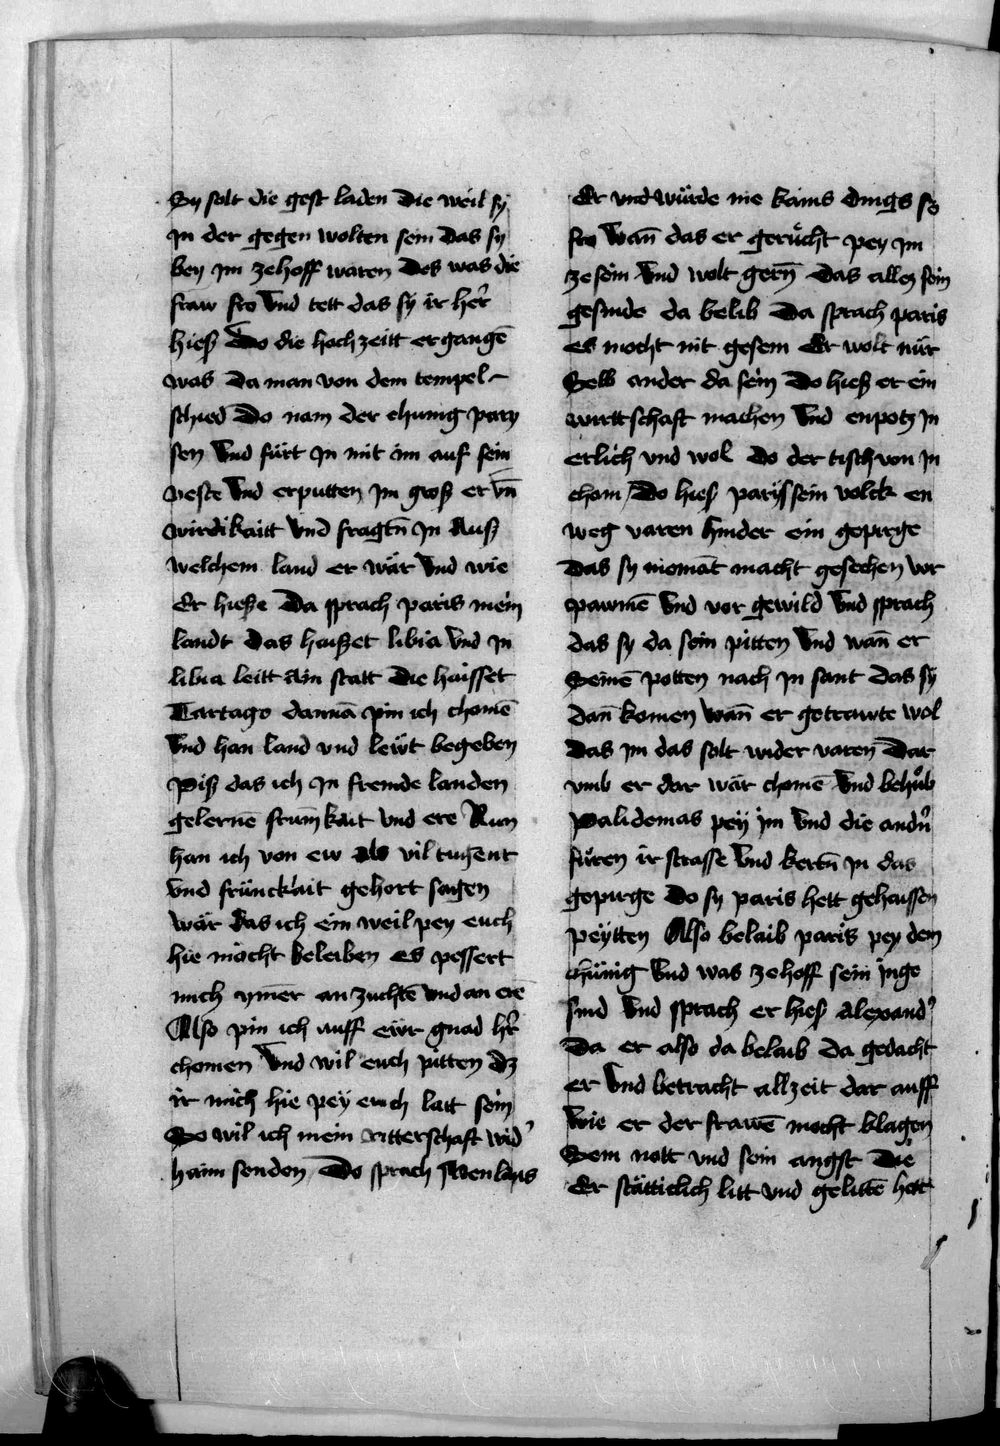 Sy solt die gest laden die weil sy
In der gegen wolten sein das sy
bey im ze hoff waren Des was die
fraw fro Vnd tett das sy ir her̄
hieß Do die hochzeitt ergangē
was Da man von dem tempel
schied Do nam der chunig pary
sen Vnd fürt In mit im auf sein
veste Vnd erputten Im groß er vn̄
wirdikaitt Vnd fragtn̄ In Auß
welchem land er wär Vnd wie
Er hieße Da sprach paris mein
landt Das haißet libia Vnd In
libia leitt ain statt Die haisset
Cartago dannā pin ich chomē
Vnd han land vnd lewt begeben
Piß das ich In fremde landen
gelerne frumkait vnd ere Nun
han ich von ew als vil tugent
vnd frümckait gehort sagen
wär das ich ein weil pey euch
hie mocht beleiben es pessert
mich ymer an zuchtē vnd an ere
Also pin ich auff ewr gnad hr̄
chomen Vnd wil euch pitten dz
ir mich hie pey euch latt sein
So wil ich mein ritterschaft wid'
haim senden Do sprach Menlaus
Er vnd würde nie kains dings so
fro Wan̄ das er gerücht pey Im
ze sein Vnd wolt gern̄ Das alles sein
gesinde da belib Da sprach paris
es mocht nit gesein Er wolt nür
Selb ander da sein Do hieß er ein
wirttschaft machen Vnd enpotz In
erlich vnd wol Do der tisch von In
chom / Do hies parys sein volck en
weg varen hinder ein gepirge
Das sy niemāt macht gesechen vor
pawmē Vnd vor gewild Vnd sprach
das sy da sein pitten Vnd wan̄ er
Seinē potten nach In sant das sy
dan̄ komen Wan̄ er getrawte wol
Das im das solt wider varen Dar
vmb er dar wär chomē Vnd behůb
Palidemas pey im Vnd die andn̄
füren ir strasse Vnd kertn̄ In das
gepirge Do sy paris hett gehaissen
peytten Also belaib paris pey dem
chünig Vnd was ze hoff sein Inge
sind Vnd sprach er hieß Alexand'
Da er also da belaib Da gedacht
er Vnd betracht allzeit dar auff
Wie er der frawē mocht klagen
Sein nott vnd sein angst Die
Er stätticlich litt vnd gelittē hett